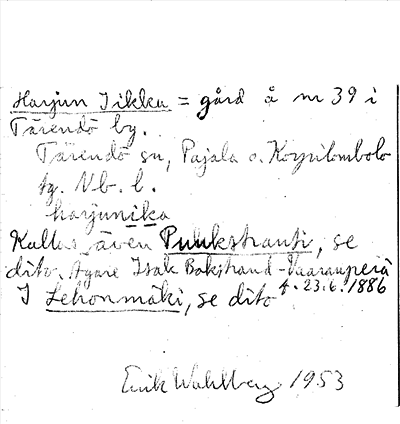 Harjun Iikka = gård å nr 39 i
Tärendö by.
Tärendö sn, Pajala o. Korpilombolo
tg. Nb. l.
harjunika
Kallas även Puukstranti, se
dito. Ägare Isak Bokstrand-Vaarauperä
f. 23.6.1886
I Lehonmäki, se dito
Erik Wahlberg 1953